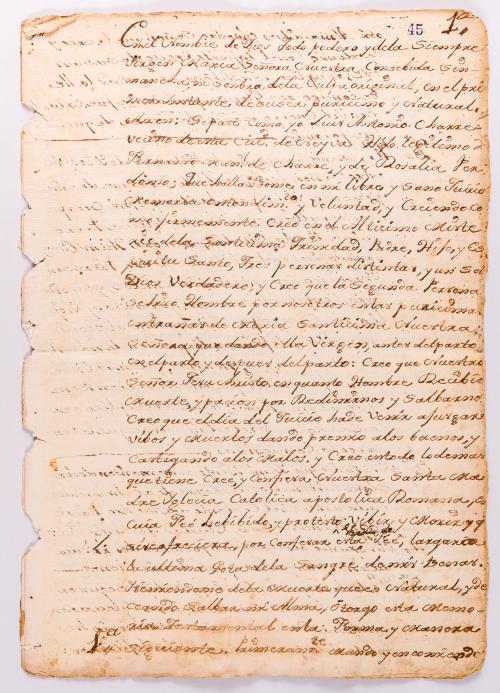 45 1.
En el Nombre de Dios Todo podero, y de la Siempre
Virgen Maria Señora Nuestra Consebida Sin
mancha, ni Sombra de la Culpa original, en el pri
mer instante de su ser purisimo y Natural.
Amen: Sepase como yo Luis Antonio Charre
vecino de esta Ciu.d de Hijo Lexitimo d
Fernando de Charre, y de Rosalia Per
que hallandome en mi libre y Sano Juicio
memoria entendim.to y Voluntad, y Creiendo Co
mo firmemente Creo en el Altisimo Miste
rio de la Santisima Trinidad, Padre, Hijo, y Es
piritu Santo, Tres personas distintas, y un Solo
Dios Verdadero; y Creo que la Segunda Persona
se hizo Hombre por nosotros en las purisimas
entrañas de Maria Santisima Nuestra
Señora quedando ella Virgen, antes del parto
en el parto y despues del parto: Creo que Nuestro
Señor Jesu Christo, en quanto Hombre Recibio
Muerte, y pasion por Redimirnos y Salbarno
Creo que el dia del Juicio hade Venir a jusgar
Vibos y Muertos dando premio a los buenos, y
Castigando a los Malos, y Creo en todo lo demas
que tiene Cree, y Confiesa Nuestra Santa Ma
dre Yglecia Catolica apostolica Romana, en
Cuia Feé he bibido, y protesto Vibir, y Morir, y
si se ofreciera, por Confesar esta Feé, largaria
la ultima Gota de la Sangre de mis Benas.
Temiendome de la Muerte que es Natural, y de
ceando Salbar mi Alma, Hago esta Memo
ria Testamental en la Forma, y Manera
1.a Siguiente. Primeram.te Mando y encomiendo